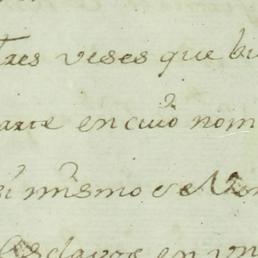 tres veses que bi
parte en cuio nom
si mismo
esclavos en un